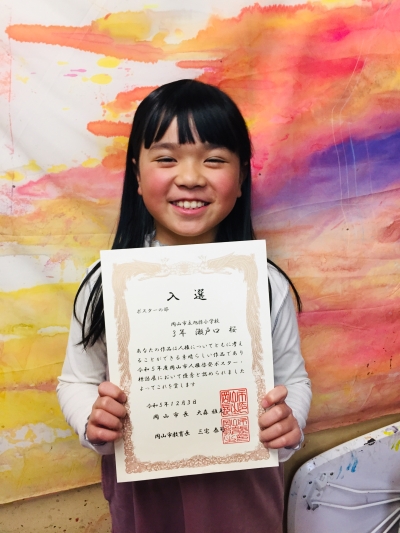 入選
ポスターの部
岡山市立旭操小学校
3年 瀬戸口 桜
あなたの作品は人権についてともに考え
ることができる素晴らしい作品であり
令和5年度岡山市人権啓発ポスター・
標語展において優秀と認められました
よってこれを賞します
令和5年12月3日
岡山市長 大森雅夫
岡山市教育長 三宅泰司